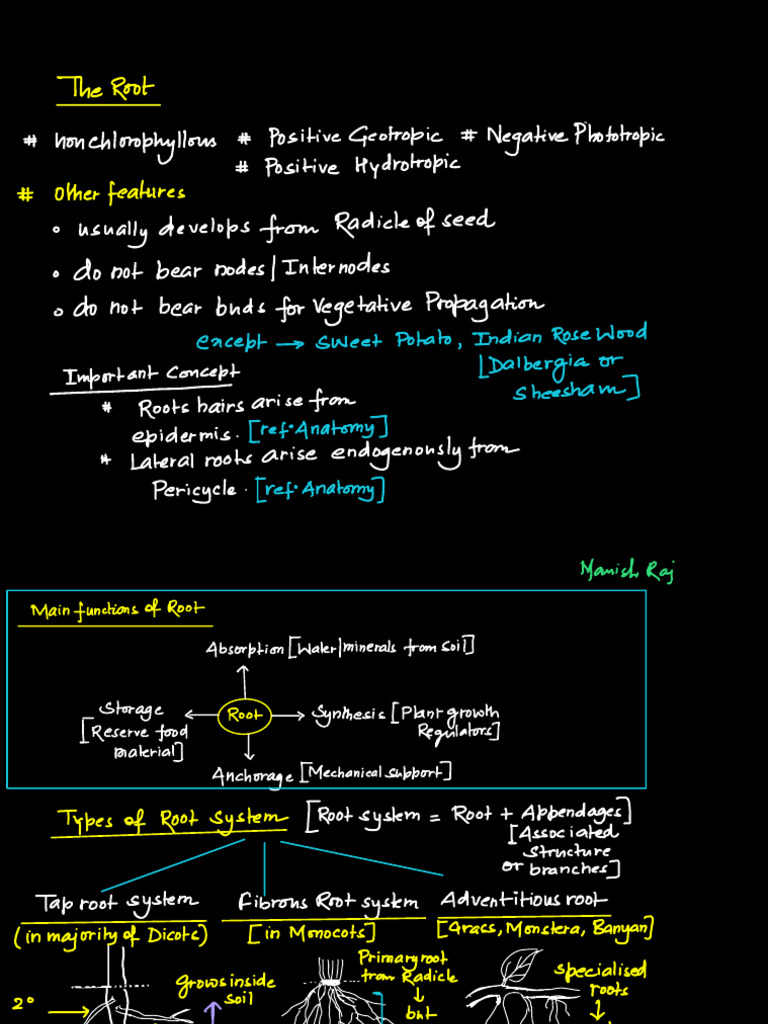 The Root
# nonchlorophyllous # Positive Geotropic # Negative Phototropic
# Positive Hydrotropic
# Other features
• usually develops from Radicle of seed
• do not bear nodes/Internodes
• do not bear buds for Vegetative Propagation
except → Sweet Potato, Indian Rose Wood
[Dalbergia or
Sheesham]
Important Concept
* Roots hairs arise from
epidermis. [ref. Anatomy]
* Lateral roots arise endogenously from
Pericycle. [ref. Anatomy]
Manish Raj
Main functions of Root
Absorption [Water/minerals from soil]
Storage
[Reserve food
material]
Root
Synthesis [Plant growth
Regulators]
Anchorage [Mechanical support]
Types of Root System [Root system = Root + Appendages]
[Associated
structure
or branches]
Tap root system
(in majority of Dicots)
Fibrous Root system
[in Monocots]
Adventitious root
[Grass, Monstera, Banyan]
2°
Grows inside
soil
Primary root
from Radicle
↓
but
specialised
roots
↓